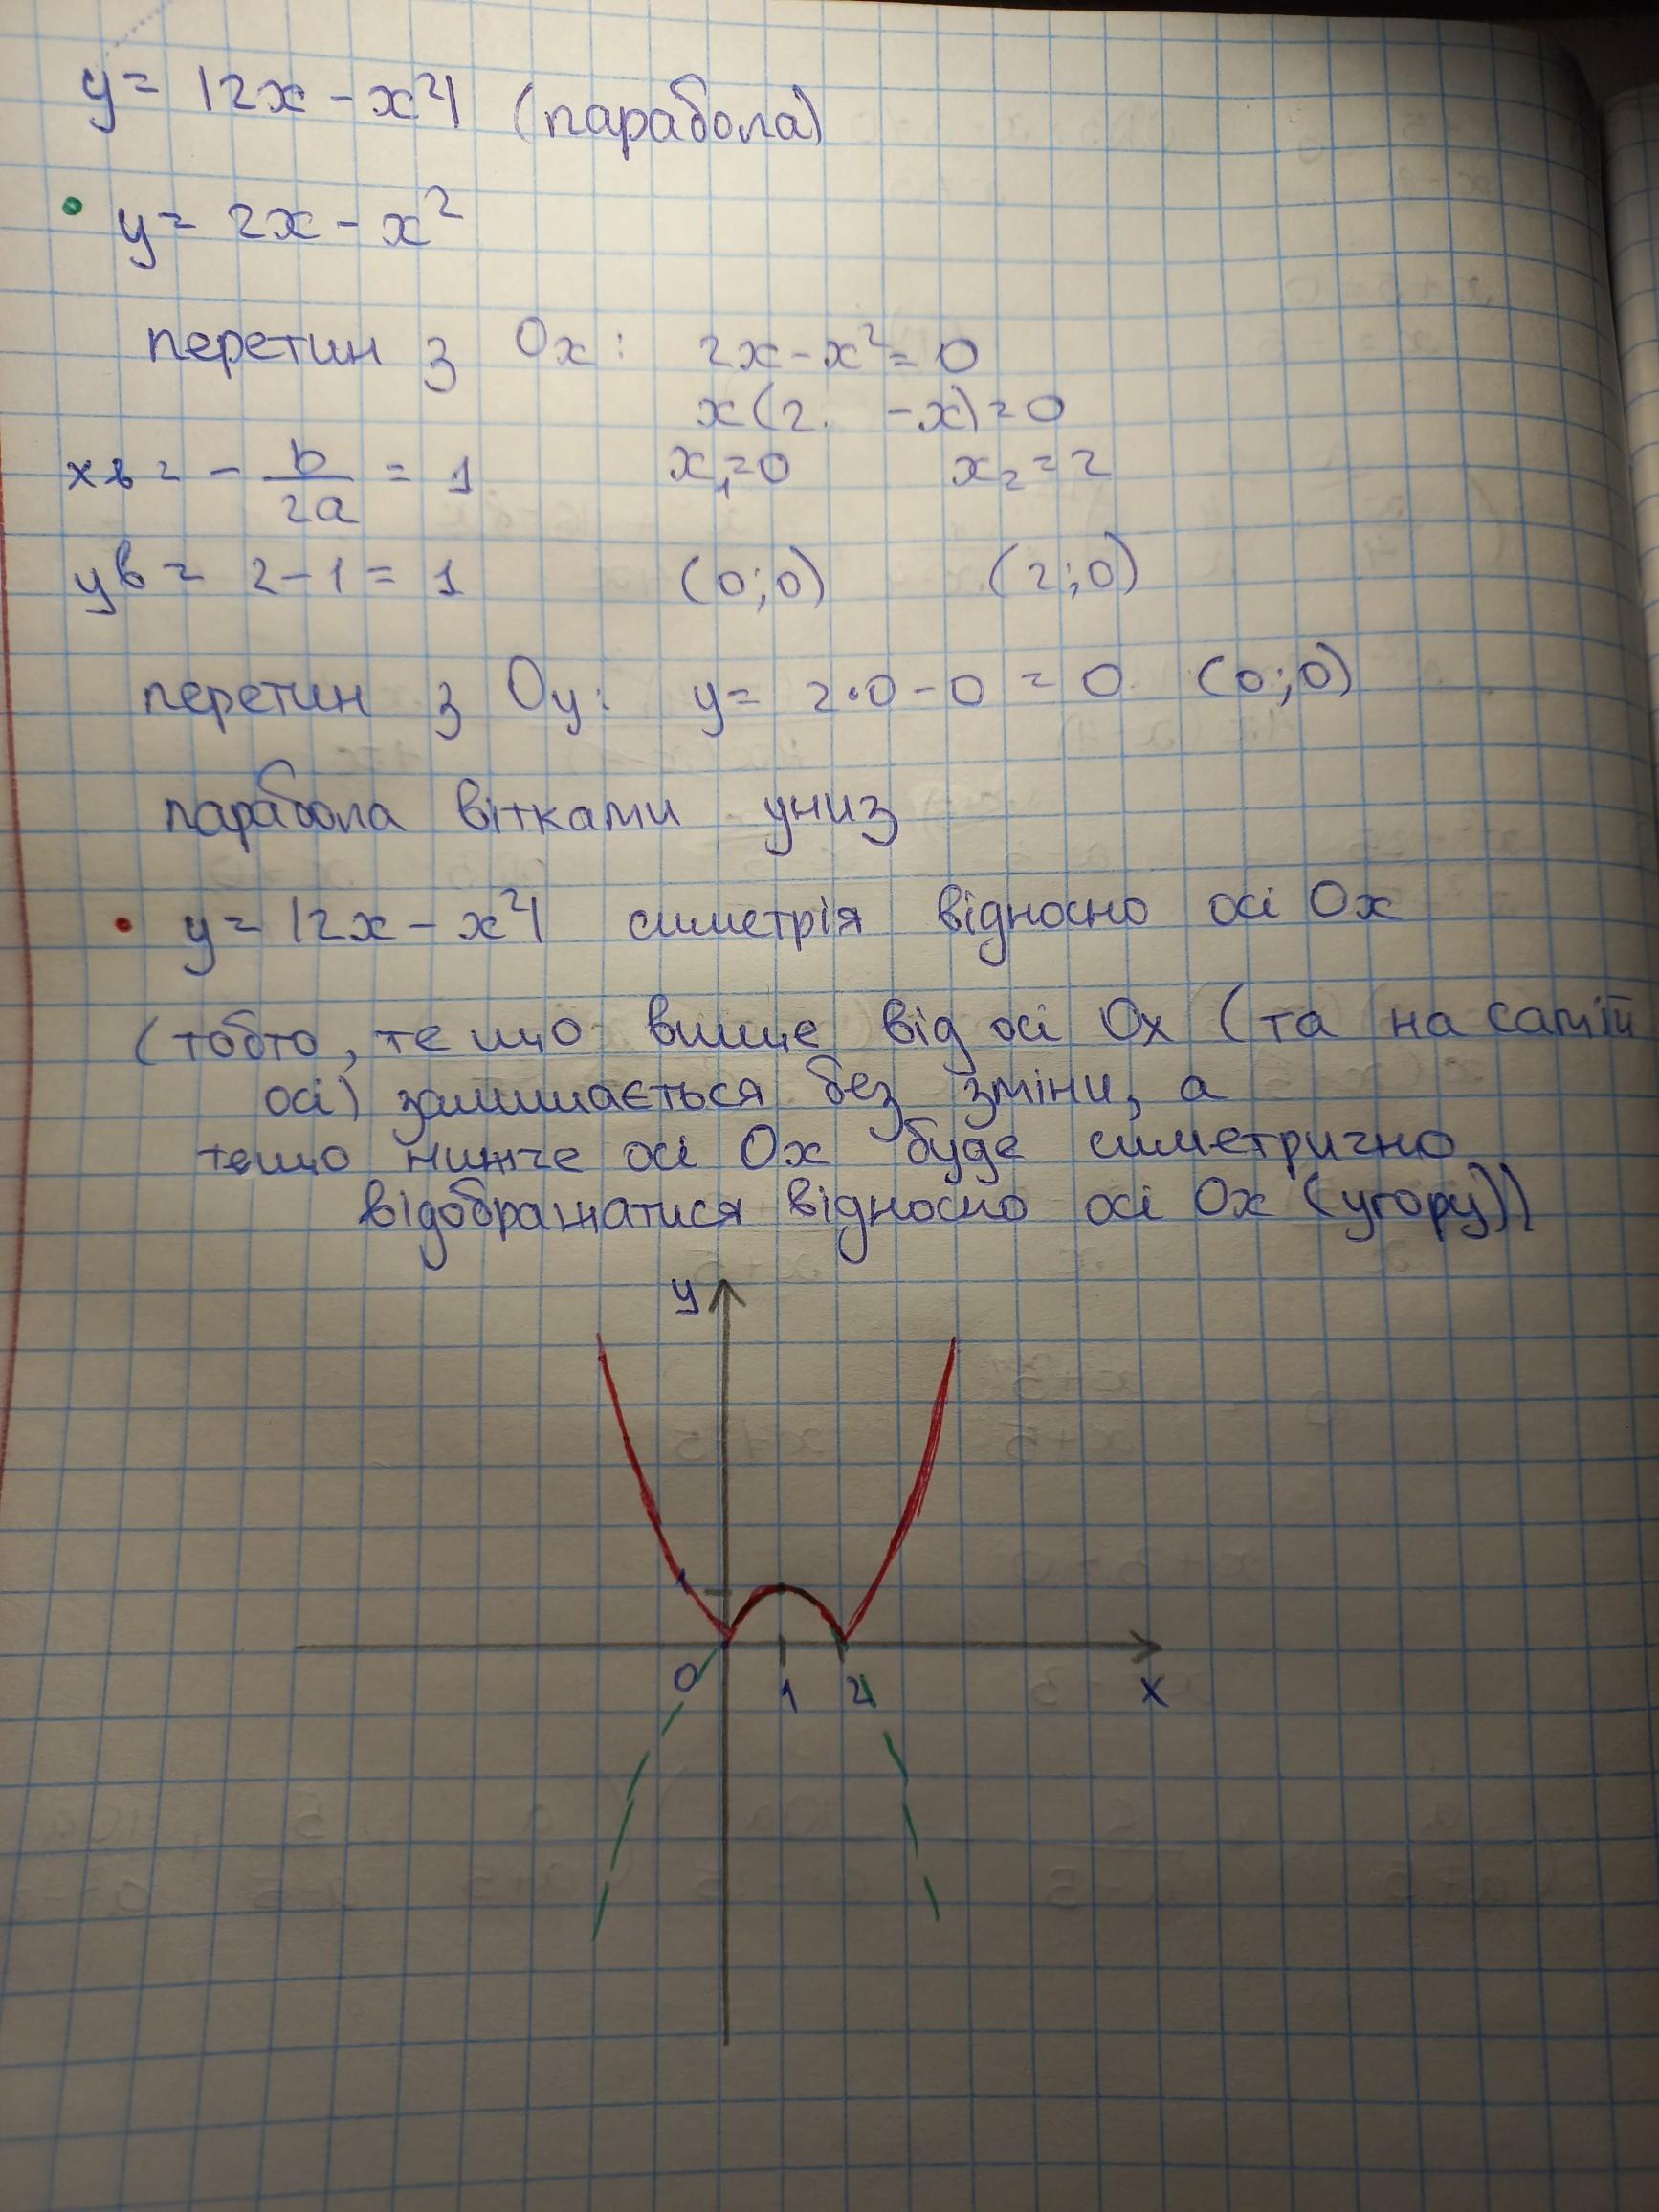 y = |2x - x²| (парабола)
y = 2x - x²
перетин з Ox: 2x - x² = 0
x(2 - x) = 0
xв = - b/2a = 1 x₁ = 0 x₂ = 2
yв = 2 - 1 = 1 (0;0) (2;0)
перетин з Oy: y = 2•0 - 0 = 0 (0;0)
парабола вітками униз
y = |2x - x²| симетрія відносно осі Ox
(тобто, те що вище від осі Ox (та на самій
осі) залишається без зміни, а
те що нижче осі Ox буде симетрично
відображатися відносно осі Ox (угору))
y
1
0 1 2 x